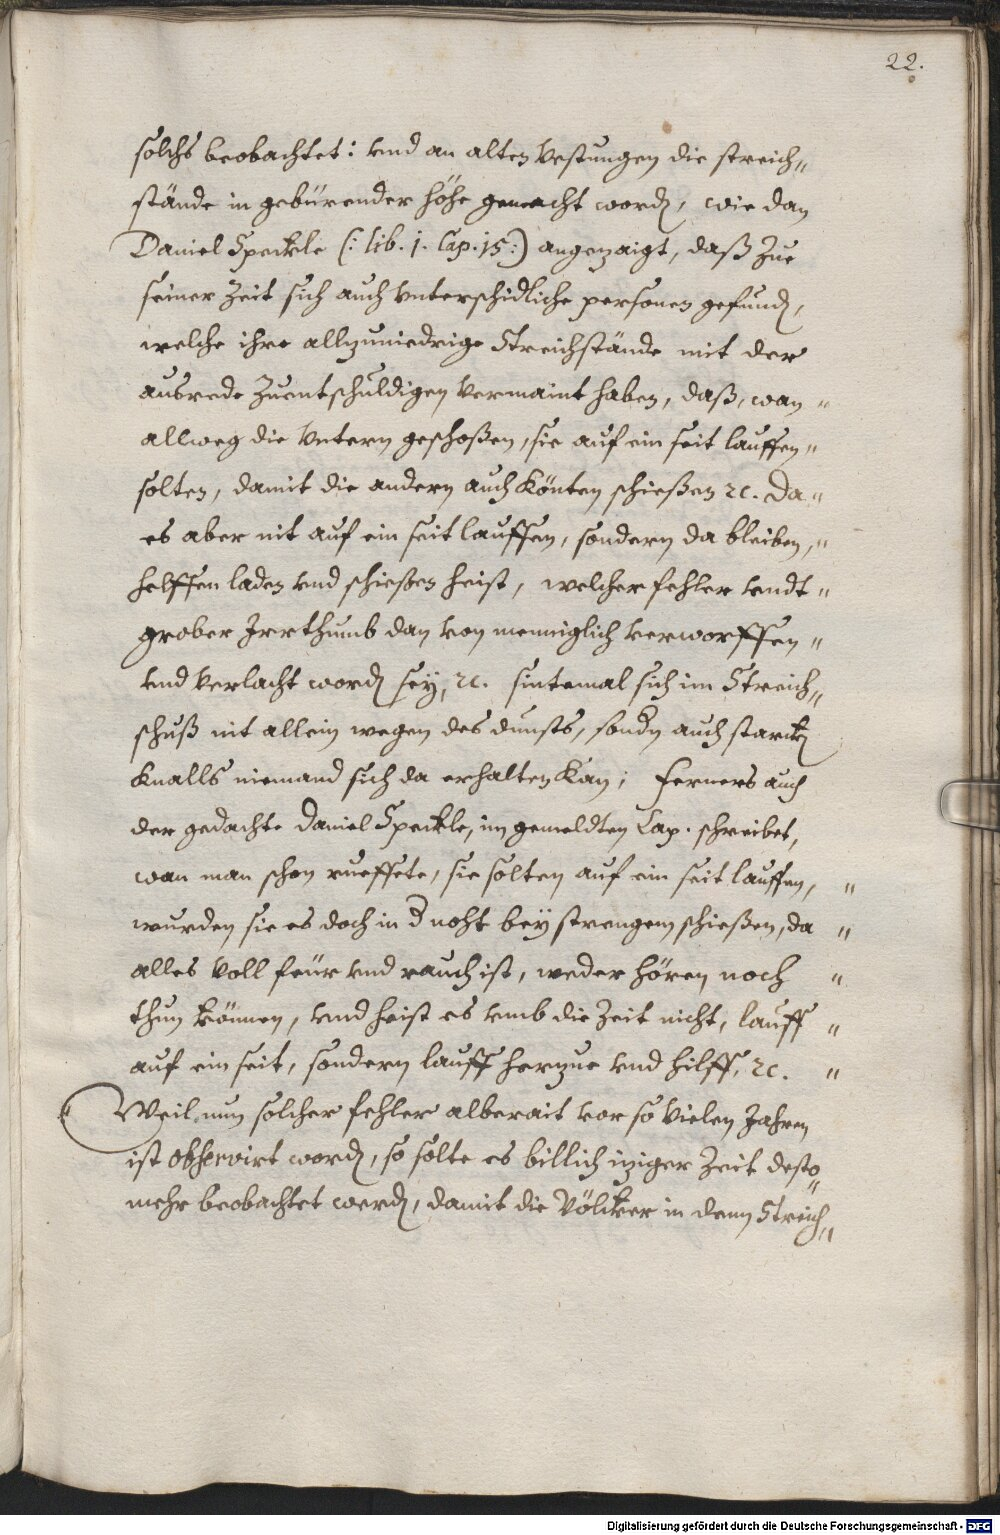 22.
solchs beobachtet: vnd an alten Vestungen die streich„
stände in gebürender höhe gemacht worden, wie dan
Daniel Speckle (: lib. 1. Cap. 15 :) angezaigt, daß Zue
seiner Zeit sich auch Vnterschidliche personen gefunden,
welche ihre allzuniedrige Streichstände mit der
ausrede Zuentschuldigen Vermaint haben, daß, wan „
allweg die Vntern geschoßen, sie auf ein seit lauffen „
solten, damit die andern auch Könten schießen ꝛc. Da „
es aber nit auf ein seit lauffen, sondern da bleiben, „
helffen laden vnd schießen heist, welcher fehler vndt „
grober Irrthumb dan von menniglich verworffen „
vnd Verlacht worden sey, ꝛc. sintemal sich im Streich„
schuß nit allein wegen des dunsts, sondern auch starcken
Knalls niemand sich da erhalten Kan; Ferners auch
der gedachte Daniel Speckle, im gemeldten Cap. schreibet,
wan man schon rueffete, sie solten auf ein seit lauffen, „
wurden sie es doch in der noht bey strengem schießen, da „
alles Voll feür vnd rauch ist, weder hören noch „
thun können, vnd heist es vmb die Zeit nicht, lauff „
auf ein seit, sondern lauff herzue vnd hilff, ꝛc. „
Weil nun solcher fehler alberait vor so Vielen Jahren
ist observirt worden, so solte es billich iziger Zeit desto„
mehr beobachtet werden, damit die Völcker in denn Streich„
Digitalisierung gefördert durch die Deutsche Forschungsgemeinschaft - DFG